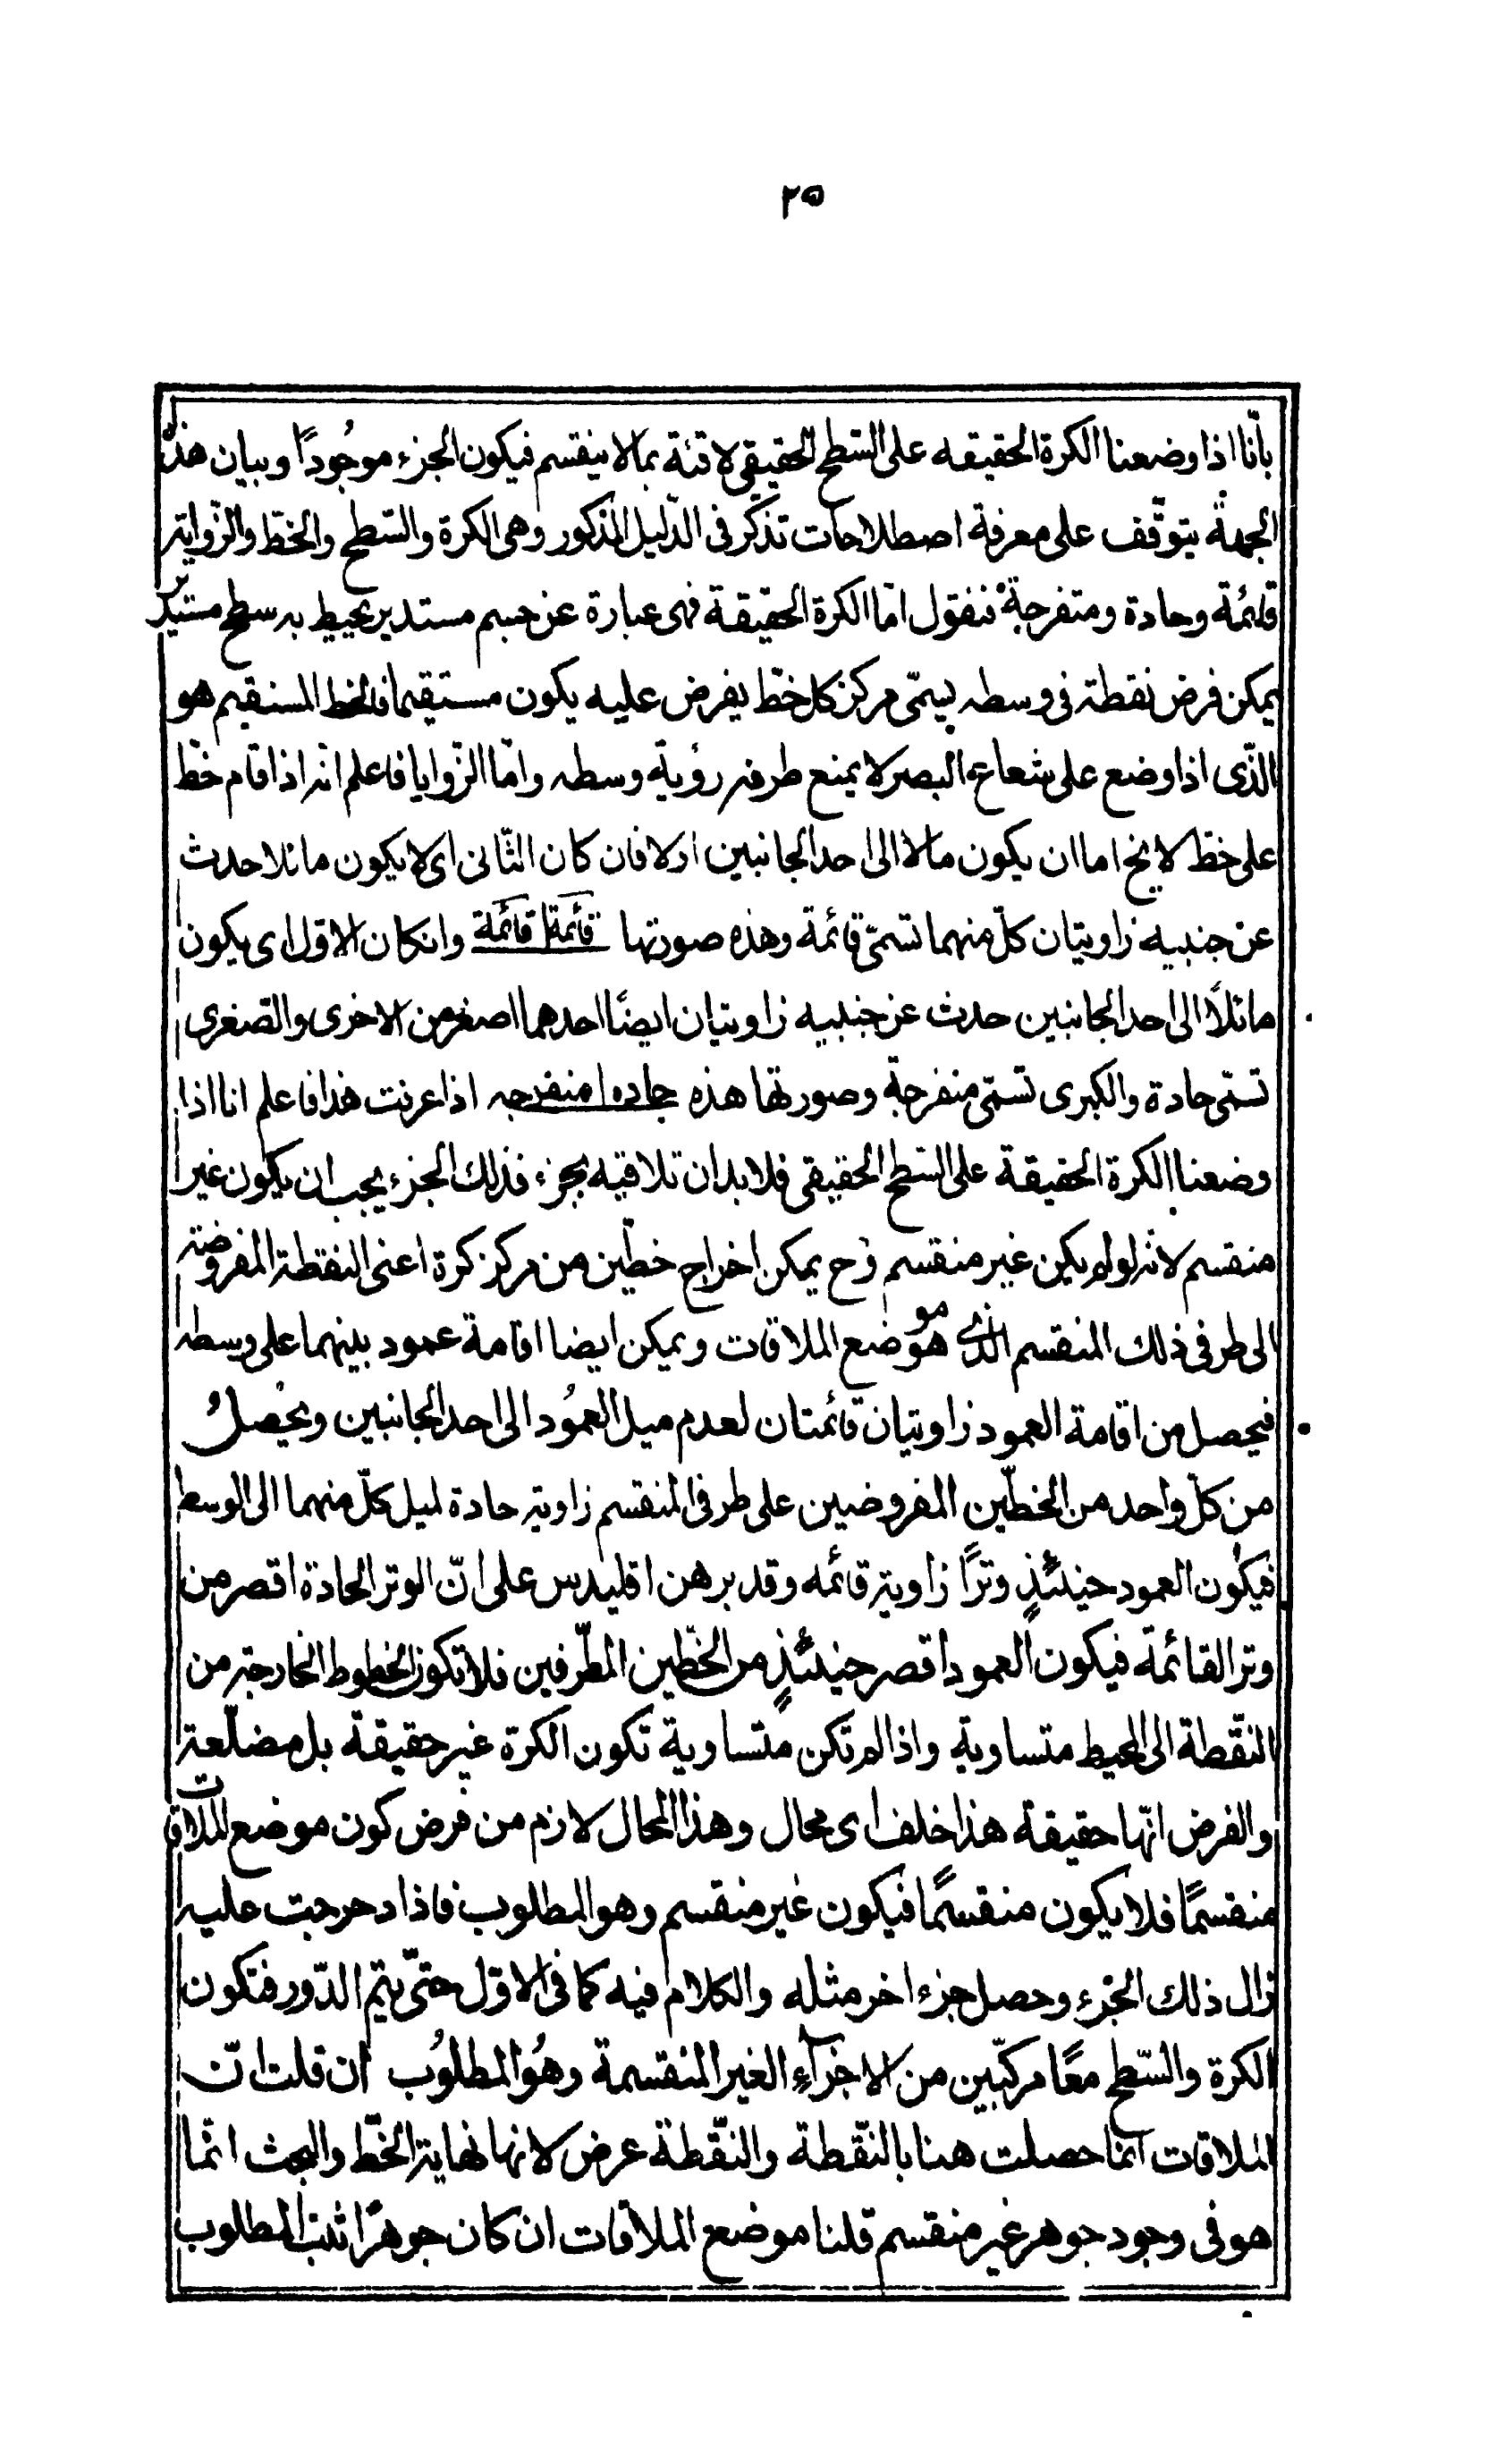 ٢٥
بأنّا اذا وضعنا الكرة الحقيقه على السّطح الحقيقى لاقته بما لا ينقسم فيكون الجزء موجُودًا وبيان هذه
الجهة يتوقّف على معرفة اصطلاحات تذكر فى الدّليل المذكور وهى الكرة والسّطح والخطّ والزّواية
قائمة وحادة ومنفرجة فنقول امّا الكرة الحقيقة فهى عبارة عن جسم مستدير يحيط به سطح مستدير
يمكن فرض نقطة فى وسطه يسمّى مركز كل خطّ يفرض عليه يكون مستقيما فالخط المستقيم هو
الذّى اذا وضع على شعاع البصر لا يمنع طرفه رؤية وسطه وامّا الزّوايا فاعلم انه اذا قام خطّ
على خطّ لا يخ اما ان يكون مائلا الى احد الجانبين او لا فان كان الثّانى اى لا يكون مائلا حدث
عن جنبيه زاويتان كلّ منهما تسمّى قائمة وهذه صورتها قائمة قائمة وانكان الاوّل اى يكون
مائلًا الى احد الجانبين حدث عن جنبيه زاويتان ايضًا احدهما اصغر من الاخرى والصّغرى
تسمّى حادة والكبرى تسمّى منفرجة وصورتها هذه حاده منفرجه اذا عرفت هذا فاعلم انا اذا
وضعنا الكرة الحقيقة على السّطح الحقيقى فلا بد ان تلاقيه بجزء فذلك الجزء يجب ان يكون غير
منقسم لانّه لو لم يكن غير منقسم وح يمكن اخراج خطّين من مركز كرة اعنى النقطة المفروضة
الى طرفى ذلك المنقسم الذى هو موضع الملاقات ويمكن ايضا اقامة عمود بينهما على وسطه
فيحصل من اقامة العمود زاويتان قائمتان لعدم ميل العمُود الى احد الجانبين ويحْصلُ
من كلّ واحد من الخطّين المفروضين على طرفى المنقسم زاوية حادة لميل كلّ منهما الى الوسط
فيكون العمود حينئذٍ وترًا زاوية قائمه وقد برهن اقليدس على انّ الوتر الحادة اقصر من
وتر القائمة فيكون العمود اقصر حينئذٍ من الخطّين المطّرفين فلا تكون الخطوط الخارجة من
النّقطة الى المحيط متساوية واذا لم تكن متساوية تكون الكرة غير حقيقة بل مضلّعة
والفرض انّها حقيقة هذا خلف اى محال وهذا المحال لازم من فرض كون موضع الملاقات
منقسمًا فلا يكون منقسمًا فيكون غير منقسم وهو المطلوب فاذا دحرجت عليه
زال ذلك الجزء وحصل جزء اخر مثله والكلام فيه كما فى الاوّل حتّى يتمّ الدّور فتكون
الكرة والسّطح معًا مركّبين من الاجزآء الغير المنقسمة وهُو المطلوُب ان قلت انّ
الملاقات انّما حصلت هنا بالنّقطة والنّقطة عرض لانها نهاية الخّط والبحث انّما
هو فى وجود جوهر غير منقسم قلنا موضع الملاقات ان كان جوهرًا ثبت المطلوب